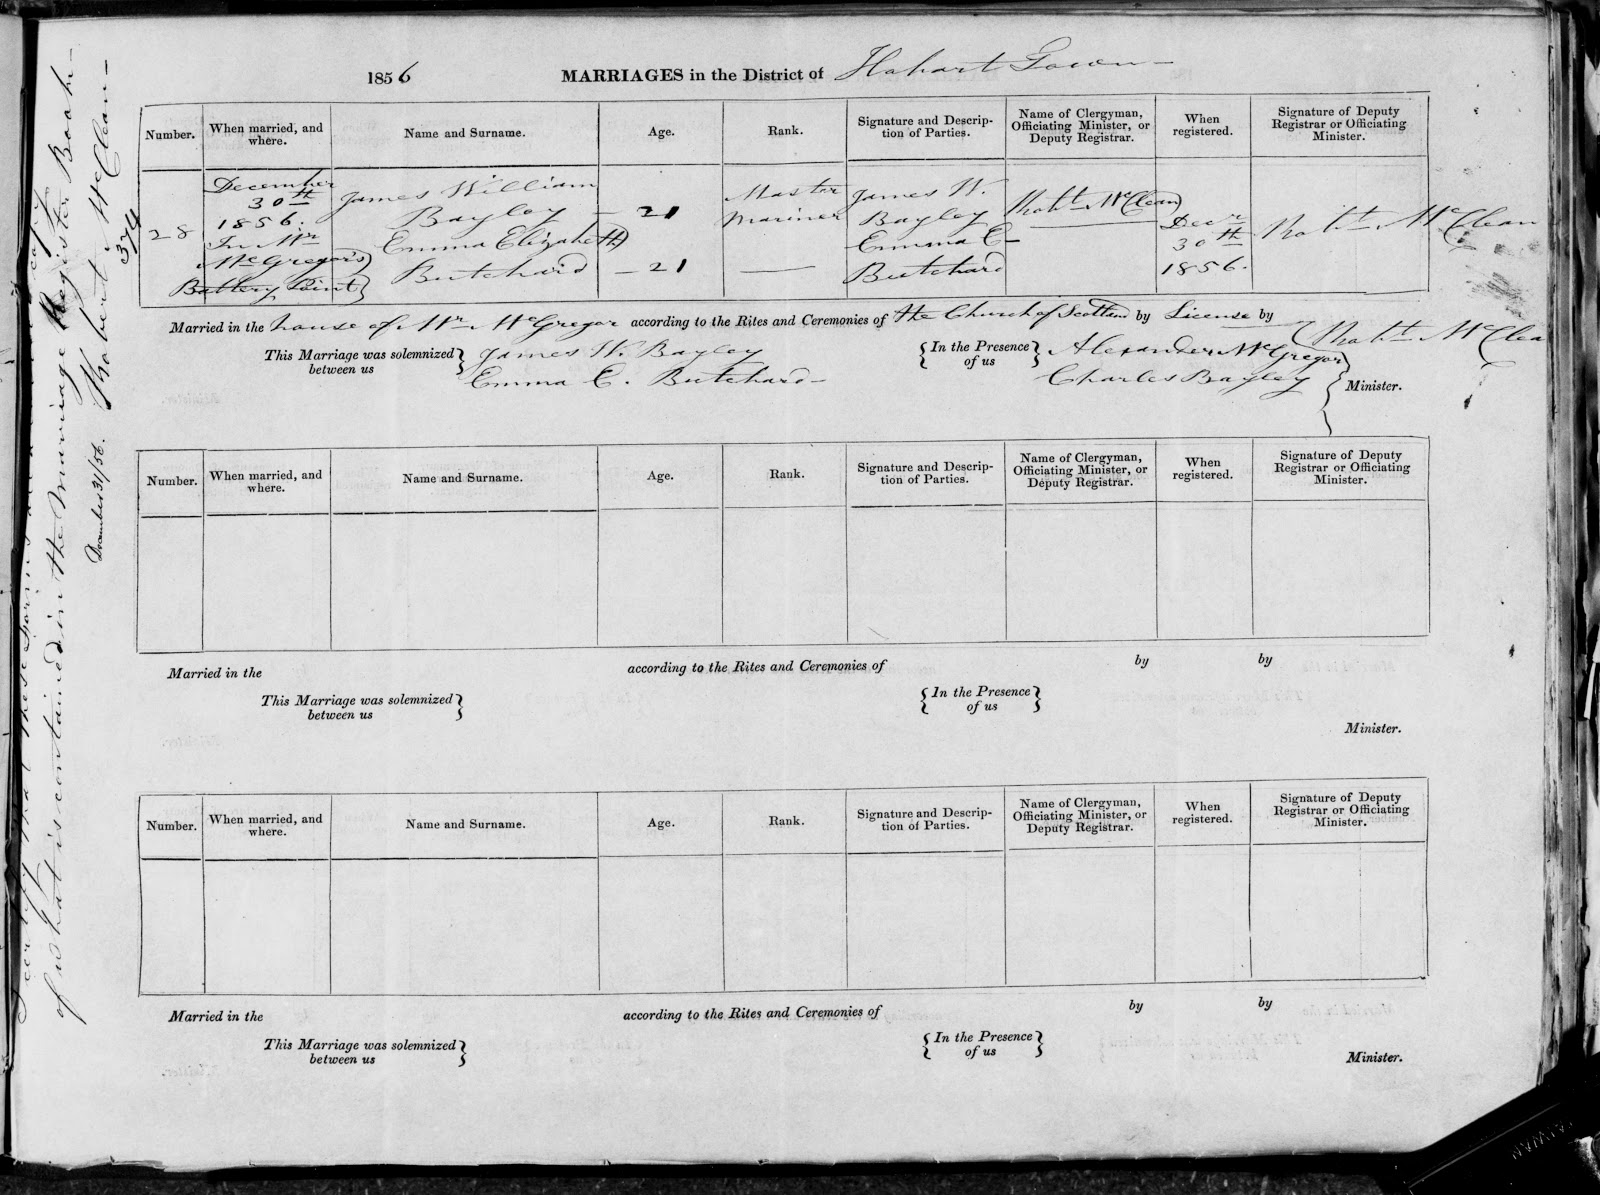 1856 MARRIAGES in the District of Hobart Town -
Number. When married, and where. Name and Surname. Age. Rank. Signature and Description of Parties. Name of Clergyman, Officiating Minister, or Deputy Registrar. When registered. Signature of Deputy Registrar or Officiating Minister.
28
December
30th
1856.
In Mr
McGregor's
Battery Point
James William
Bayley
Emma Elizabeth
Butchard
- 21
- 21
Master
Mariner
—
James W.
Bayley
Emma E-
Butchard
Robt McClean
Decr
30th
1856.
Robt McClean
Married in the house of Mr McGregor according to the Rites and Ceremonies of the Church of Scotland by License by
Robt McClea
This Marriage was solemnized between us
James W. Bayley
Emma E. Butchard -
In the Presence of us
Alexander McGregor
Charles Bayley
Minister.
Number. When married, and where. Name and Surname. Age. Rank. Signature and Description of Parties. Name of Clergyman, Officiating Minister, or Deputy Registrar. When registered. Signature of Deputy Registrar or Officiating Minister.
Married in the according to the Rites and Ceremonies of by by
This Marriage was solemnized between us
In the Presence of us
Minister.
Number. When married, and where. Name and Surname. Age. Rank. Signature and Description of Parties. Name of Clergyman, Officiating Minister, or Deputy Registrar. When registered. Signature of Deputy Registrar or Officiating Minister.
Married in the according to the Rites and Ceremonies of by by
This Marriage was solemnized between us
In the Presence of us
Minister.
I certify that these forms copy
of what is contained in the Marriage Register Book -
December 31/56. Robert McClean -
374